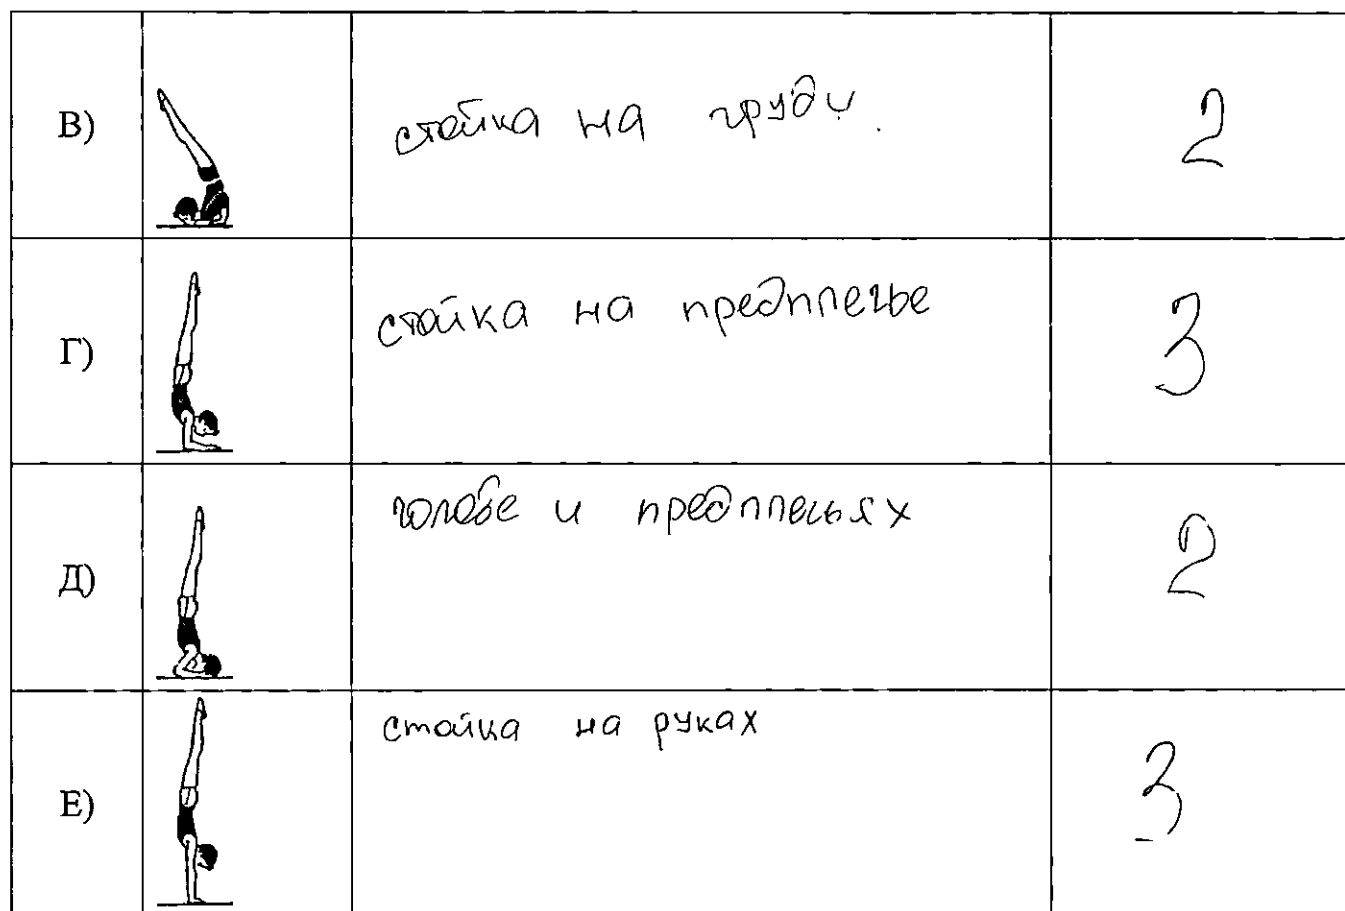 В) стойка на груди. 2
Г) стойка на предплечье 3
Д) голове и предплечьях 2
Е) стойка на руках 3